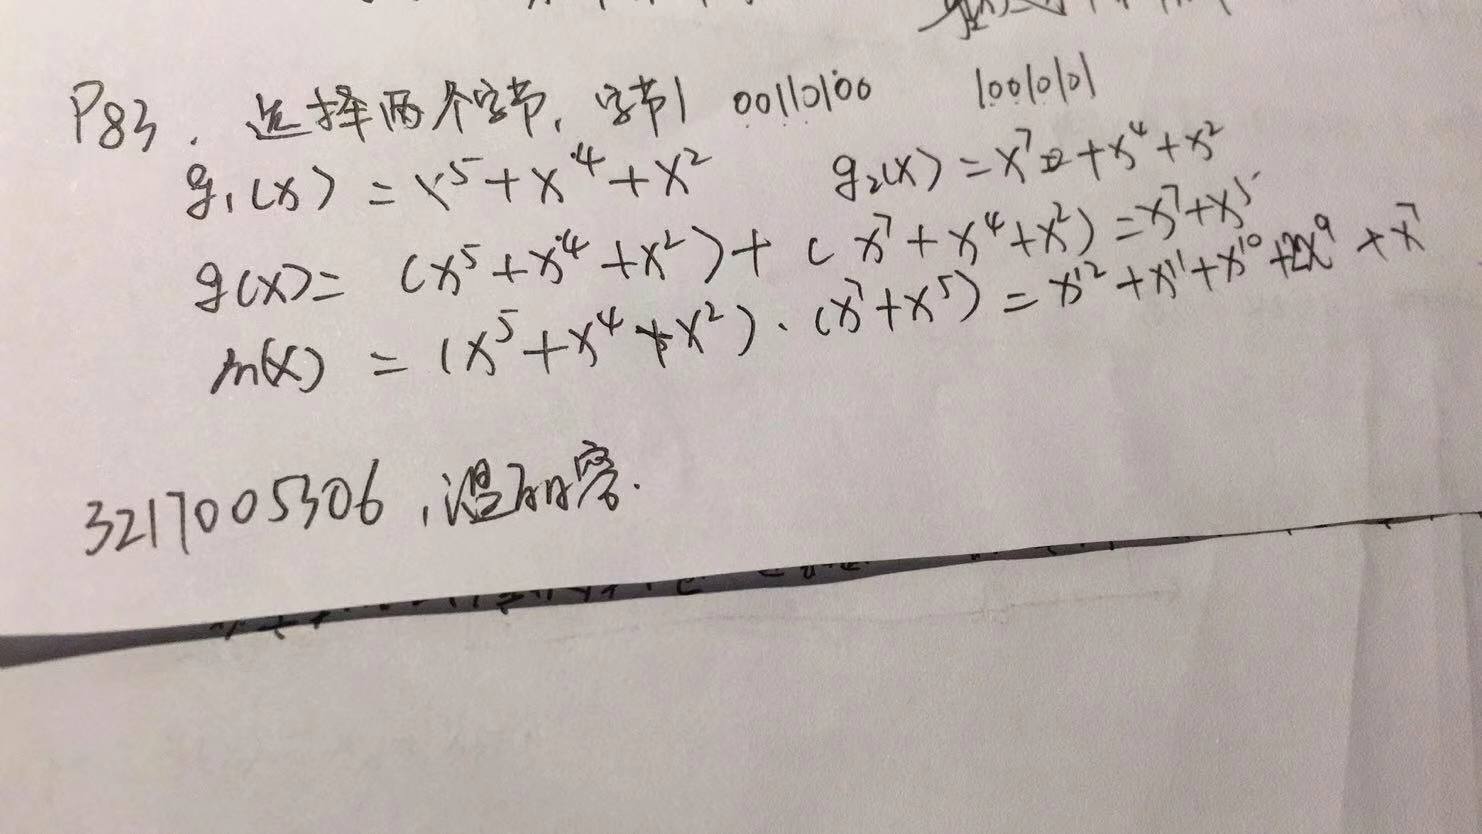 P83. 选择两个字节, 字节1 00110100 10010101
g₁(x) = x⁵+x⁴+x² g₂(x) = x⁷+x⁴+x²
g(x)= (x⁵+x⁴+x²)+(x⁷+x⁴+x²)=x⁷+x⁵
m(x) = (x⁵+x⁴+x²)·(x⁷+x⁵) = x¹²+x¹¹+x¹⁰+2x⁹+x⁷
3217005306,温